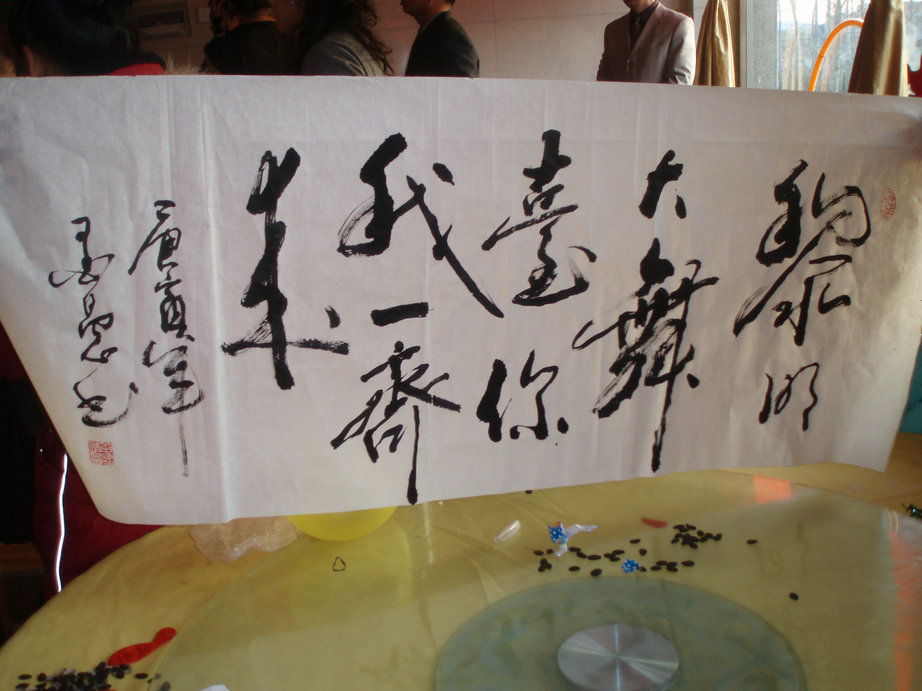 黎明
大舞
臺你
我一齊
來
庚寅年
书